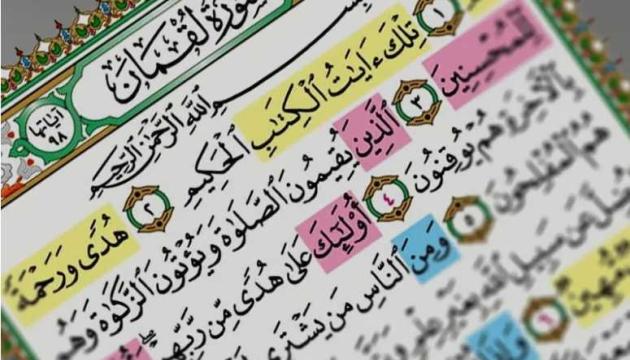 سُورَةُ لُقْمَان
بِسْمِ ٱللَّهِ ٱلرَّحْمَٰنِ ٱلرَّحِيمِ
١ تِلْكَ ءَايَٰتُ ٱلْكِتَٰبِ ٱلْحَكِيمِ ٢ هُدًى وَرَحْمَةً
لِّلْمُحْسِنِينَ ٣ ٱلَّذِينَ يُقِيمُونَ ٱلصَّلَوٰةَ وَيُؤْتُونَ ٱلزَّكَوٰةَ وَهُم
بِٱلْءَاخِرَةِ هُمْ يُوقِنُونَ ٤ أُو۟لَٰٓئِكَ عَلَىٰ هُدًى مِّن رَّبِّهِمْ
هُمُ ٱلْمُفْلِحُونَ ٥ وَمِنَ ٱلنَّاسِ مَن يَشْتَرِى
عَن سَبِيلِ ٱللَّهِ بِغَيْرِ
مُّهِينٌ ٦ وَإِذَا